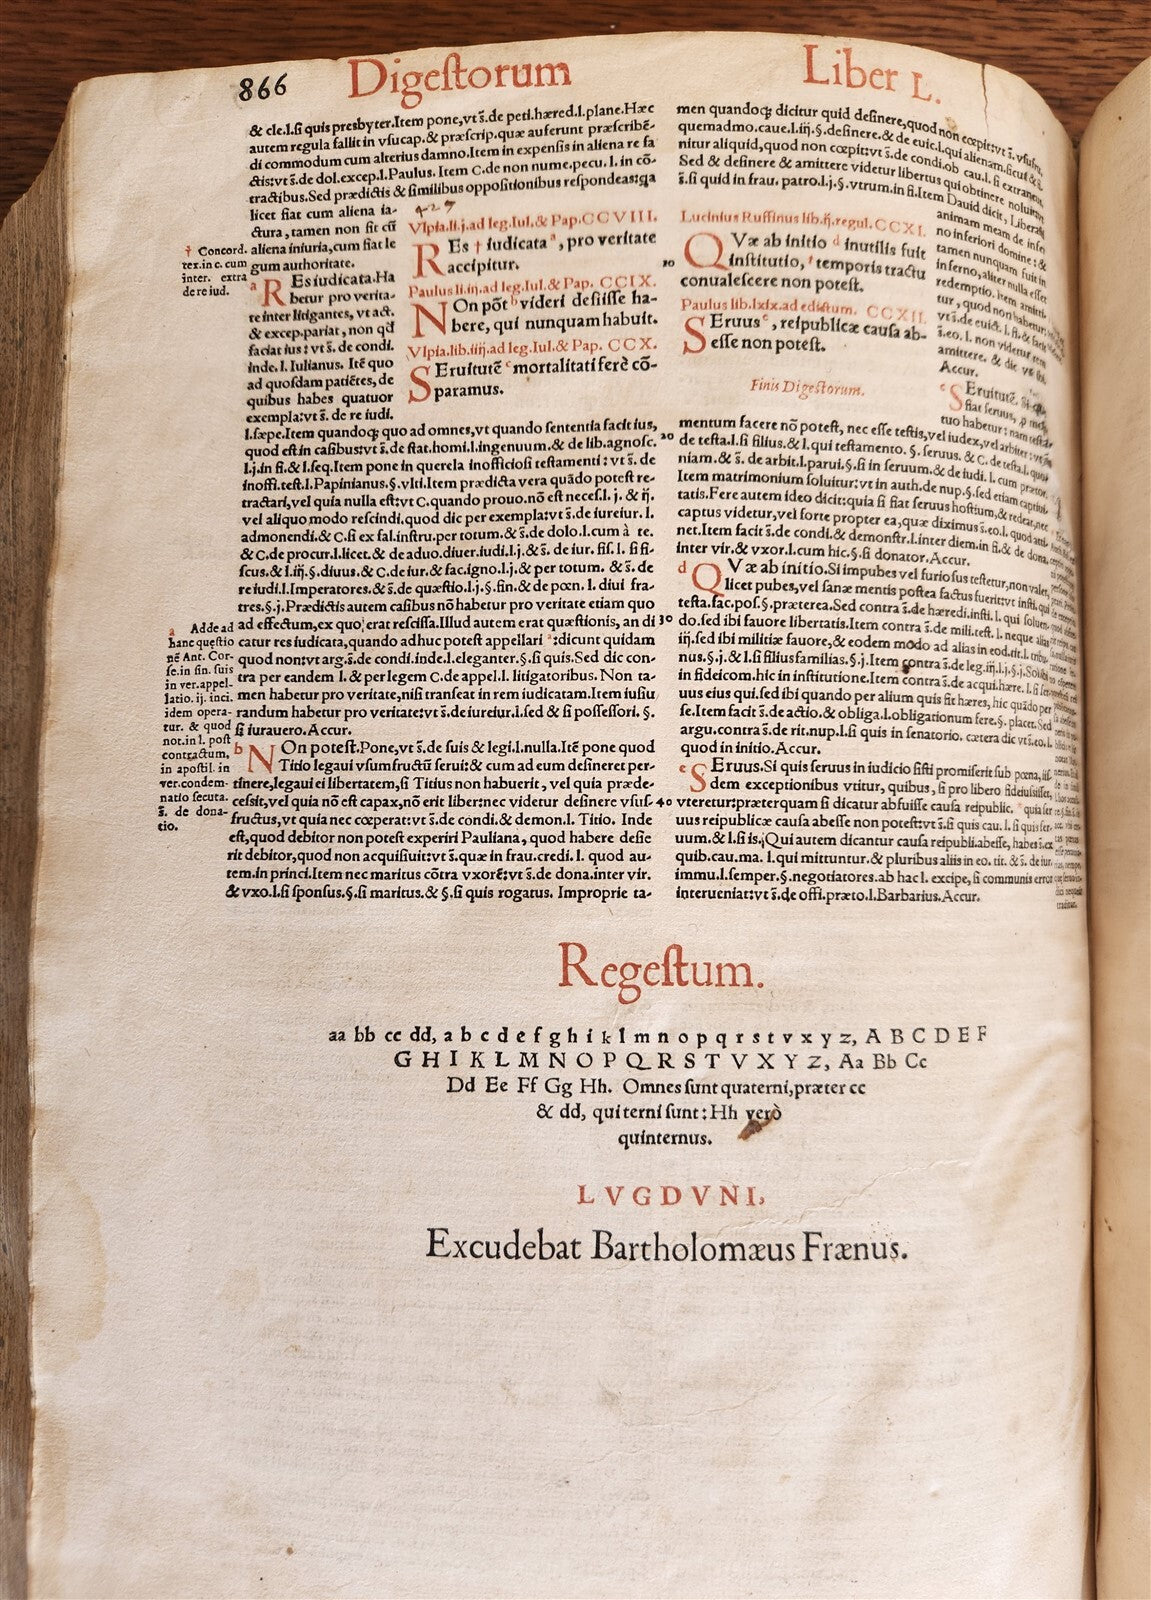 866 Digestorum Liber L.
& cle.l.si quis presbyter.Item pone,vt s̃.de peti.hæred.l.plane.Hæc
autem regula fallit in vsucap.& præscrip.quæ auferunt præscribẽ-
di commodum cum alterius damno.Item in expensis in aliena re fa
ctis:vt s̃.de dol.excep.l.Paulus. Item C.de non nume.pecu. l. in cõ-
tractibus.Sed prædictis & similibus oppositionibus respondeas:qa
licet fiat cum aliena ia-
ctura, tamen non fit cũ
aliena iniuria,cum fiat le
gum authoritate.
† Concord.
ter.in c. cum
inter. extra
de re iud.
a REs iudicata.Ha
betur pro verita-
te inter litigantes, vt act.
& excep.pariat, non qđ
faciat ius: vt s̃. de condi.
inde. l. Iulianus. Itẽ quo
ad quosdam patiẽtes, de
quibus habes quatuor
exempla:vt s̃. de re iudi.
l.sæpe.Item quandoq; quo ad omnes,vt quando sententia facit ius,
quod est in casibus:vt s̃.de stat.homi.l.ingenuum.& de lib.agnosc.
l.j.in fi.& l.seq.Item pone in querela inofficiosi testamenti: vt s̃. de
inoffi.test.l.Papinianus.§.vlti.Item prædicta vera quãdo potest re-
tractari,vel quia nulla est:vt C.quando prouo.nõ est neces.l. j. & ij.
vel aliquo modo rescindi.quod dic per exempla:vt s̃.de iureiur. l.
admonendi.& C.si ex fal.instru.per totum.& s̃.de dolo.l.cum à te.
& C.de procur.l.licet.& de aduo.diuer.iudi.l.j.& s̃. de iur. fis. l. si fi-
scus.& l.iij.§.diuus.& C.de iur.& fac.igno.l.j.& per totum. & s̃. de
re iudi.l.Imperatores.& s̃.de quæstio.l.j.§.fin.& de pœn.l. diui fra-
tres.§.j.Prædictis autem casibus nõ habetur pro veritate etiam quo
ad effectum,ex quo erat rescissa.Illud autem erat quæstionis, an di
catur res iudicata,quando adhuc potest appellari a:dicunt quidam
quod non:vt arg.s̃.de condi.inde.l.eleganter.§.si quis.Sed dic con-
tra per eandem l. & per legem C.de appel.l. litigatoribus. Non ta-
men habetur pro veritate,nisi transeat in rem iudicatam.Item iusiu
randum habetur pro veritate:vt s̃.de iureiur.l.sed & si possessori. §.
si iurauero.Accur.
a Adde ad
hanc questio
nẽ Ant. Cor-
se.in sin. suis
in ver.appel-
latio. ij. inci.
idem opera-
tur. & quod
not.in l. post
contractum.
in apostil. in
ver.condem-
natio secuta.
s̃. de dona-
tio.
b NOn potest.Pone,vt s̃.de suis & legi.l.nulla.Itẽ pone quod
Titio legaui vsumfructũ serui:& cum ad eum desineret per-
tinere,legaui ei libertatem,si Titius non habuerit, vel quia præde-
cessit,vel quia nõ est capax,nõ erit liber:nec videtur desinere vsus-
fructus,vt quia nec cœperat:vt s̃.de condi.& demon.l. Titio. Inde
est,quod debitor non potest experiri Pauliana, quod habere desie
rit debitor,quod non acquisiuit:vt s̃.quæ in frau.credi.l. quod au-
tem.in princi.Item nec maritus cõtra vxorẽ:vt s̃.de dona.inter vir.
& vxo.l.si sponsus.§.si maritus.& §.si quis rogatus. Improprie ta-
427
Vlpia.li.j.ad leg.Iul.& Pap.CCVIII.
REs † iudicata a, pro veritate
accipitur.
Paulus li.iij.ad leg.Iul.& Pap. CCIX.
NOn põt b videri desiisse ha-
bere, qui nunquam habuit.
Vlpia.lib.iiij.ad leg.Iul.& Pap. CCX.
SEruitutẽ c mortalitati ferè cõ-
paramus.
10
20
30
40
men quandoq; dicitur quid desinere,quod non cœpit:vt s̃. vsusfru.
quemadmo.caue.l.iij.§.desinere.& de euic.l.qui alienam.sicut &
nitur aliquid,quod non cœpit:vt s̃.de condi.ob cau.l. si extraneus.
Sed & desinere & amittere videtur libertus qui obtinere noluit:vt
s̃.si quid in frau. patro.l.j.§.vtrum.in fi.Item Dauid dicit, Liberasti
animam meam de infer
no inferiori domine: &
tamen nunquam fuit in
inferno,aliter nulla esset
redemptio. item amitti-
tur, quod non habetur:
vt s̃.de euict. l. fi.
s̃.eo. l. non videtur
amittere. & dic
Accur.
Lucinius Ruffinus lib.ij.regul. CCXI.
QVæ ab initio d inutilis fuit
institutio, † temporis tractu
conualescere non potest.
Paulus lib.lxix.ad edictum. CCXII.
SEruus e, reipublicæ causa ab-
esse non potest.
Finis Digestorum.
c SEruitutẽ.
fiat seruus,
tuo habetur: nam
mentum facere nõ potest, nec esse testis,vel iudex,vel arbiter:
de testa.l.si filius.& l.qui testamento. §. seruus. & C. de testa.l. quo-
niam.& s̃. de arbit.l.parui.§.si in seruum.& de iudi. l. cum prætor.
Item matrimonium soluitur:vt in auth.de nup.§.sed etiam captiui-
tatis.Fere autem ideo dicit:quia si fiat seruus hostium,& redeat,nec
captus videtur,vel forte propter ea,quæ diximus s̃.eo.l. quod atti-
net.Item facit s̃.de condi.& demonstr.l.inter diem.in fi.& de dona.
inter vir.& vxor.l.cum hic.§.si donator.Accur.
d QVæ ab initio.Si impubes vel furiosus testetur,non valet,
licet pubes,vel sanæ mentis postea factus fuerit:vt insti. qui
testa.fac.pos.§.præterea.Sed contra s̃.de hæredi.insti. l. qui soluen-
do.sed ibi fauore libertatis.Item contra s̃.de mili.test. l. neque
iij.sed ibi militiæ fauore,& eodem modo ad alias in eod.tit.l. tribu-
nus.§.j.& l.si filiusfamilias.§.j.Item contra s̃.de leg.iij.l.j.§.j.
in fideicom.hic in institutione.Item contra s̃.de acqui.hære. l. si ser-
uus eius qui.sed ibi quando per alium quis fit hæres, hic quãdo per
se.Item facit s̃.de actio.& obliga.l.obligationum fere.§. placet. Sed
argu.contra s̃.de rit.nup.l.si quis in senatorio. cætera dic vt s̃.eo. l.
quod in initio.Accur.
e SEruus.Si quis seruus in iudicio sisti promiserit sub pœna,iis-
dem exceptionibus vtitur, quibus, si pro libero fideiusisset,
vteretur:præterquam si dicatur abfuisse causa reipublic. quia ser
uus reipublicæ causa abesse non potest:vt s̃.si quis cau. l. si quis ser-
uum.& l.si is.Qui autem dicantur causa reipubli.abesse, habes s̃.ex
quib.cau.ma. l.qui mittuntur.& pluribus aliis in eo. tit. & s̃. de iur.
immu.l.semper.§.negotiatores.ab hac l. excipe, si communis error
interueniat:vt s̃.de offi.præto.l.Barbarius.Accur.
Regestum.
aa bb cc dd, a b c d e f g h i k l m n o p q r s t v x y z, A B C D E F
G H I K L M N O P Q R S T V X Y Z, Aa Bb Cc
Dd Ee Ff Gg Hh. Omnes sunt quaterni,præter cc
& dd, qui terni sunt: Hh verò
quinternus.
LVGDVNI,
Excudebat Bartholomæus Frænus.